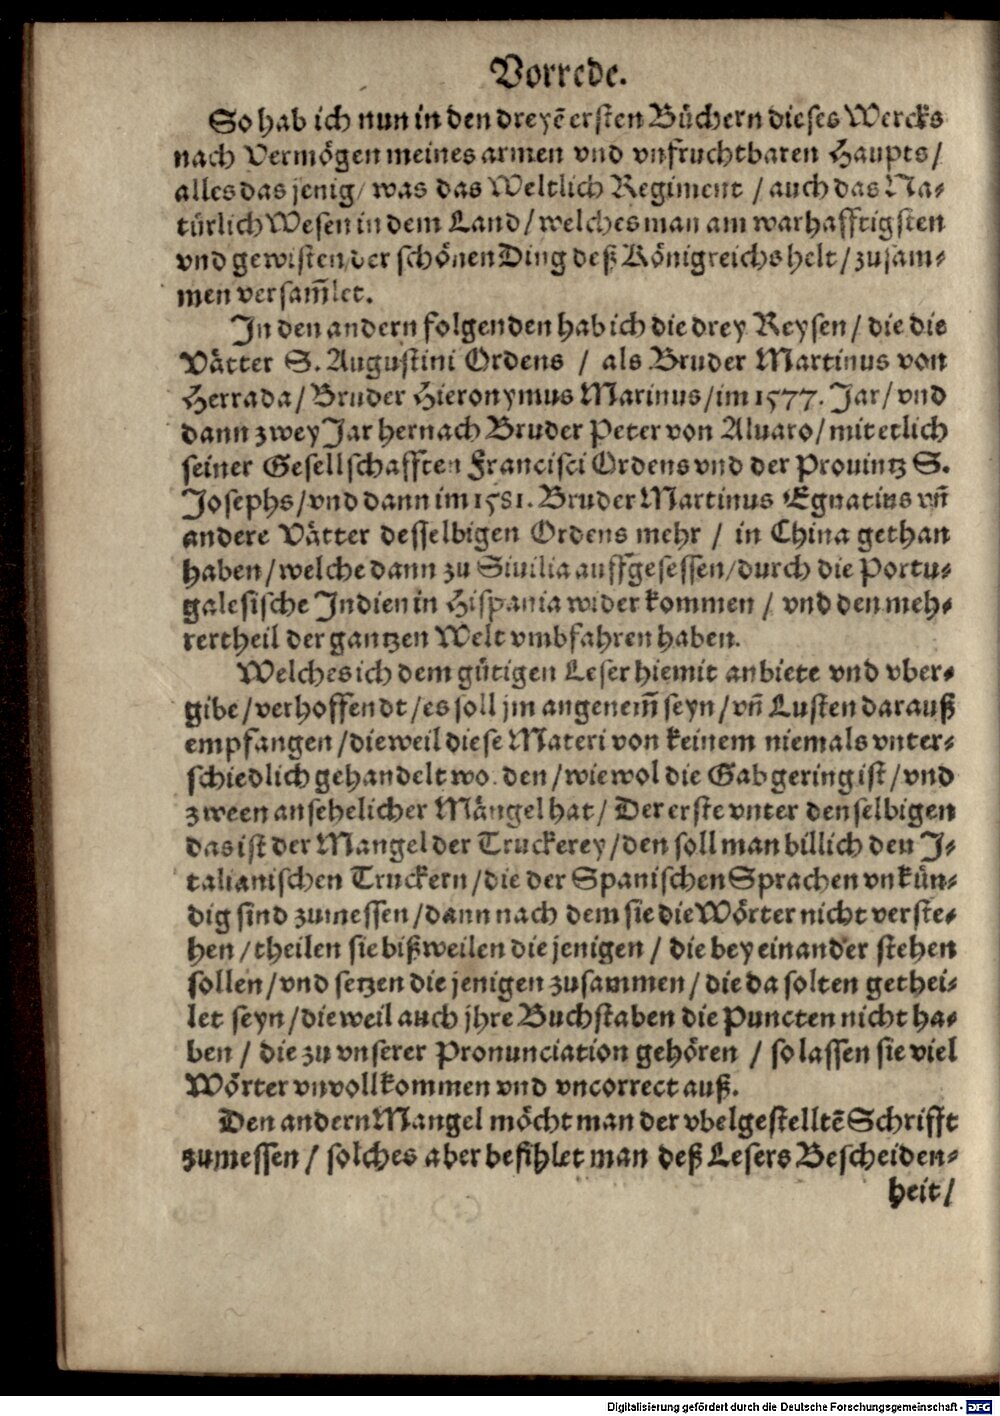 Vorrede.
So hab ich nun in den dreyẽ ersten Bůchern dieses Wercks
nach Vermögen meines armen vnd vnfruchtbaren Haupts/
alles das jenig/ was das Weltlich Regiment / auch das Na-
türlich Wesen in dem Land/ welches man am warhafftigsten
vnd gewisten der schönen Ding deß Königreichs helt/ zusam-
men versam̃let.
In den andern folgenden hab ich die drey Reysen/ die die
Vätter S. Augustini Ordens / als Bruder Martinus von
Herrada/ Bruder Hieronymus Marinus/ im 1577. Jar/ vnd
dann zwey Jar hernach Bruder Peter von Aluaro/ mit etlich
seiner Gesellschafften Francisci Ordens vnd der Prouintz S.
Josephs/ vnd dann im 1581. Bruder Martinus Egnatius vñ
andere Vätter desselbigen Ordens mehr / in China gethan
haben/ welche dann zu Siuilia auffgesessen/ durch die Portu-
galesische Indien in Hispania wider kommen / vnd den meh-
rertheil der gantzen Welt vmbfahren haben.
Welches ich dem gütigen Leser hiemit anbiete vnd vber-
gibe/ verhoffendt/ es soll jm angenem̃ seyn/ vñ Lusten darauß
empfangen/ dieweil diese Materi von keinem niemals vnter-
schiedlich gehandelt wo. den/ wiewol die Gab gering ist/ vnd
zween ansehelicher Mängel hat/ Der erste vnter denselbigen
das ist der Mangel der Truckerey/ den soll man billich den J-
talianischen Truckern/ die der Spanischen Sprachen vnkün-
dig sind zumessen/ dann nach dem sie die Wörter nicht verste-
hen/ theilen sie bißweilen die jenigen / die bey einander stehen
sollen/ vnd setzen die jenigen zusammen/ die da solten gethei-
let seyn/ dieweil auch jhre Buchstaben die Puncten nicht ha-
ben / die zu vnserer Pronunciation gehören / so lassen sie viel
Wörter vnvollkommen vnd vncorrect auß.
Den andern Mangel möcht man der vbelgestelltẽ Schrifft
zumessen / solches aber befihlet man deß Lesers Bescheiden-
heit/
Digitalisierung gefördert durch die Deutsche Forschungsgemeinschaft - DFG